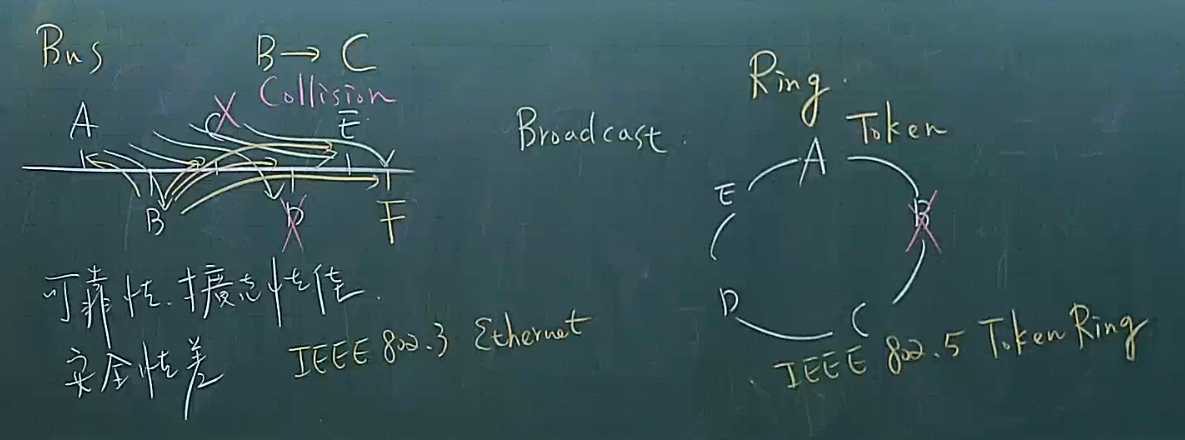 Bus
B → C
Collision
A
C
E
B
D
F
可靠性、扩充性佳
安全性差
IEEE 802.3 Ethernet
Broadcast.
Ring.
Token
A
E
B
D
C
IEEE 802.5 Token Ring